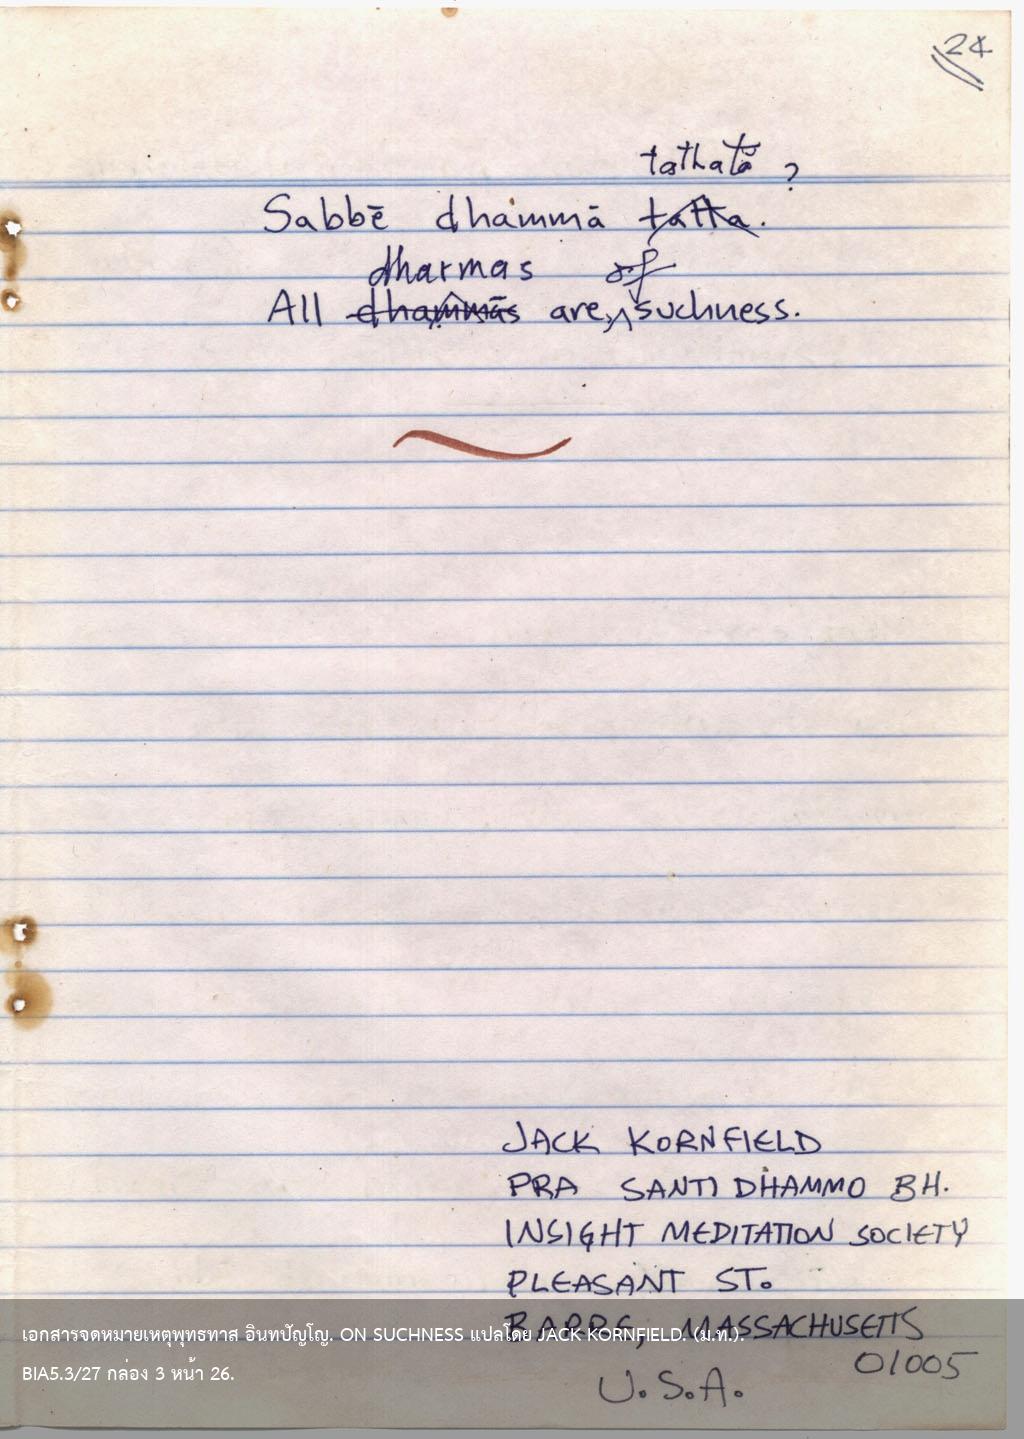 24
tathatā ?
Sabbē dhammā tatta.
dharmas of
All dhammās are, suchness.
JACK KORNFIELD
PRA SANTIDHAMMO BH.
INSIGHT MEDITATION SOCIETY
PLEASANT ST.
BARRE, MASSACHUSETTS
01005
U.S.A.
เอกสารจดหมายเหตุพุทธทาส อินทปัญโญ. ON SUCHNESS แปลโดย JACK KORNFIELD. (ม.ท.).
BIA5.3/27 กล่อง 3 หน้า 26.